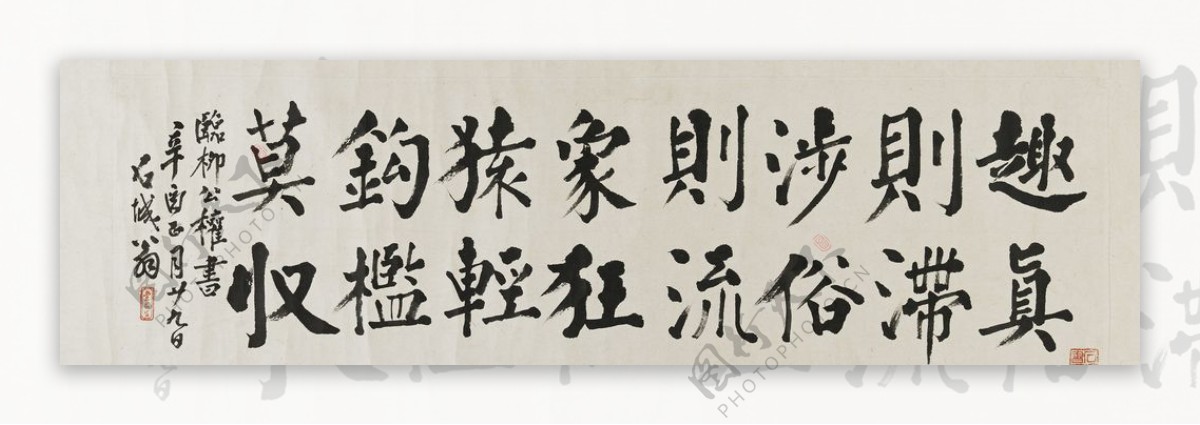 趣真
則滯
涉俗
則流
象狂
猿輕
鈎檻
莫収
臨柳公權書
辛酉正月廿九日
石城翁